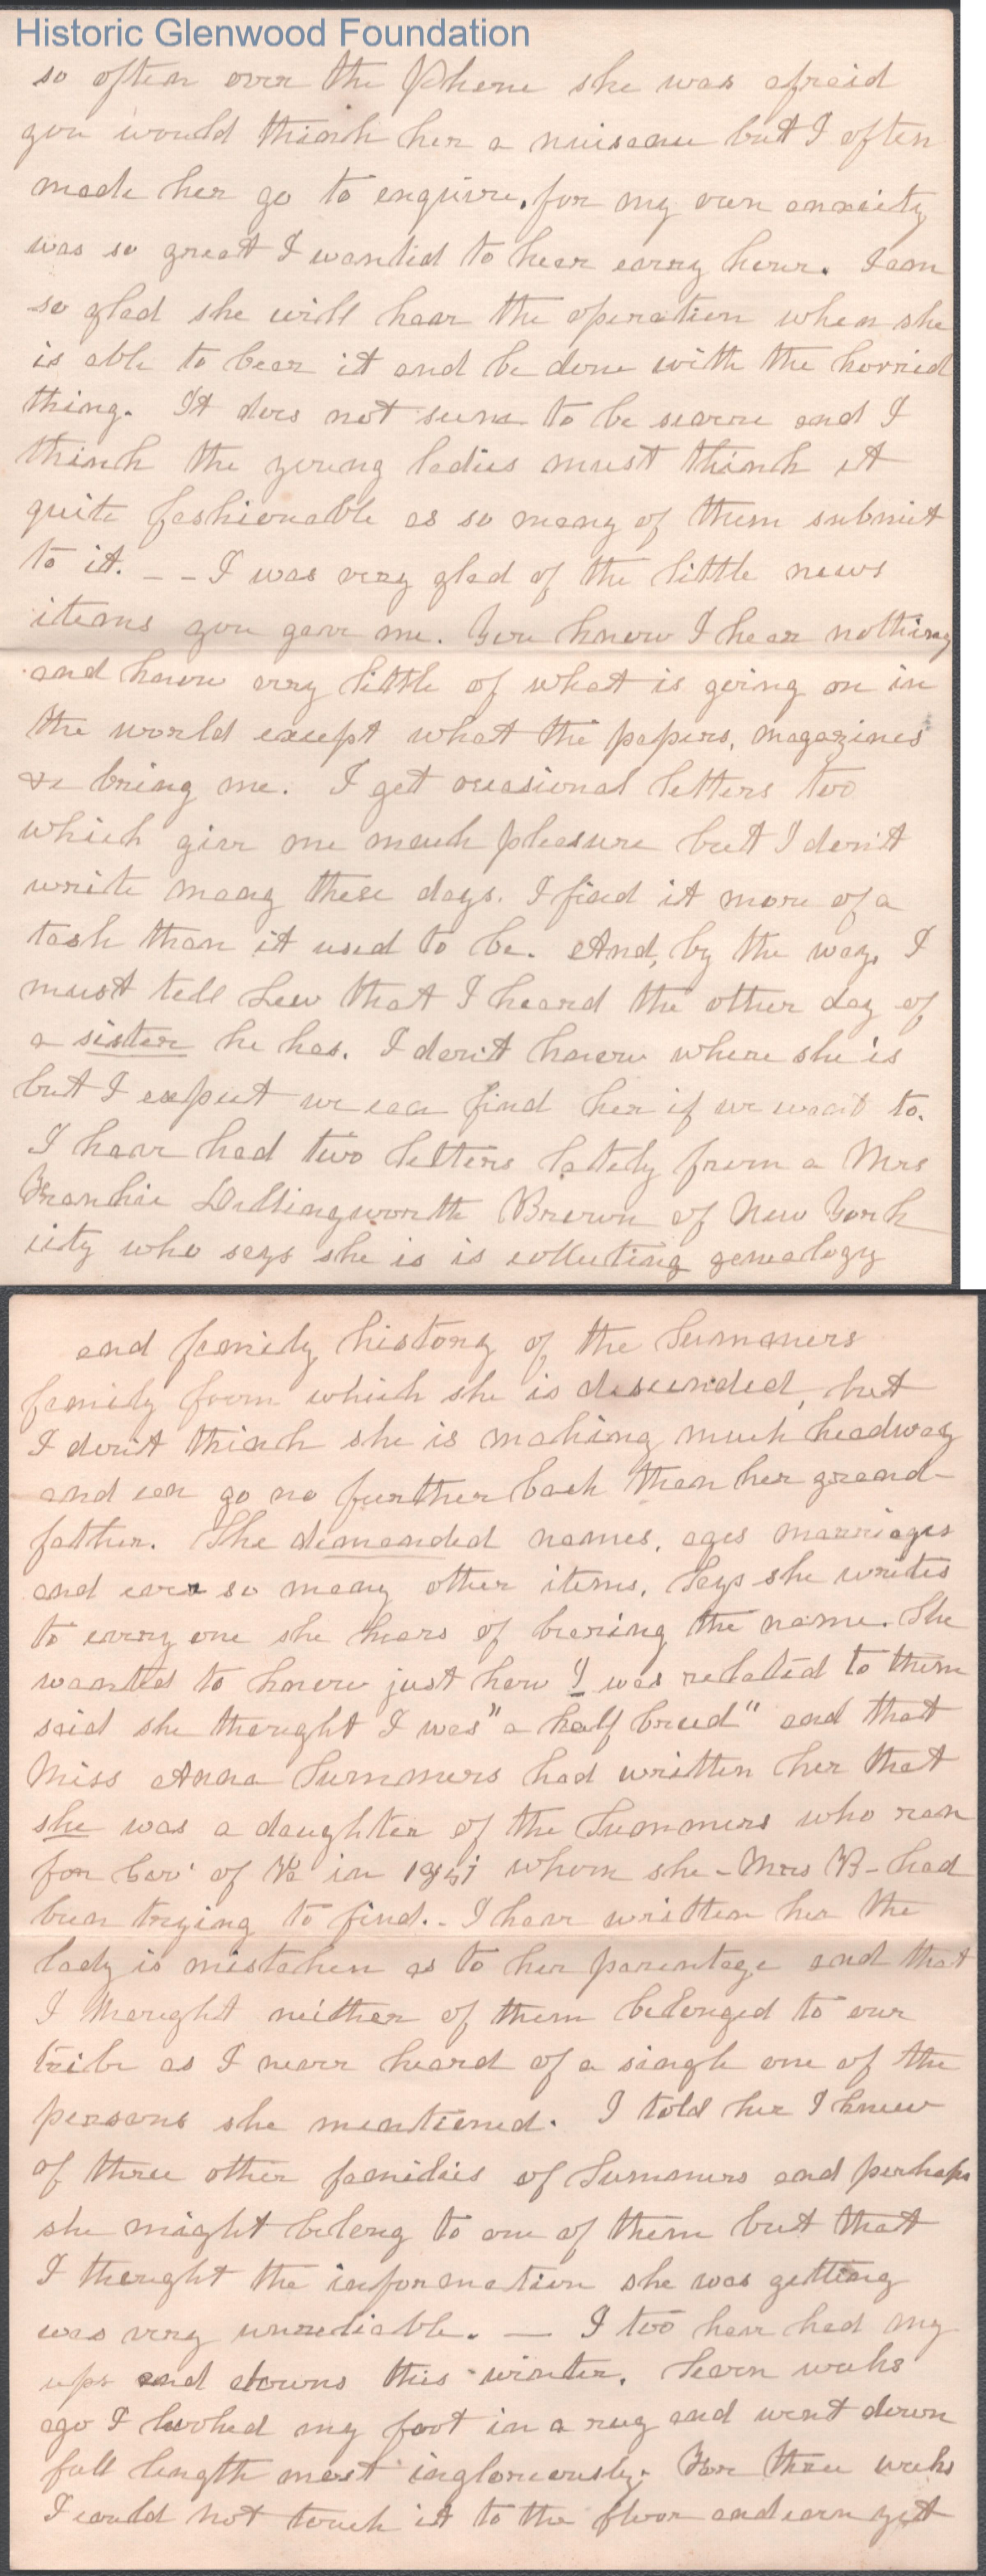 Historic Glenwood Foundation
so often over the Phone she was afraid
you would think her a nuisance but I often
made her go to enquire, for my own anxiety
was so great I wanted to hear every hour. I am
so glad she will have the operation when she
is able to bear it and be done with the horrid
thing. It does not seem to be severe and I
think the young ladies must think it
quite fashionable as so many of them submit
to it. - - I was very glad of the little news
items you gave me. You know I hear nothing
and know very little of what is going on in
the world except what the papers, magazines
&c bring me. I get occasional letters too
which give me much pleasure but I don't
write many these days. I find it more of a
task than it used to be. And, by the way, I
must tell Lew that I heard the other day of
a sister he has. I don't know where she is
but I expect we can find her if we want to.
I have had two letters lately from a Mrs
Frankie Dillingworth Brown of New York
city who says she is is collecting genealogy
and family history of the Summers
family from which she is descended, but
I don't think she is making much headway
and can go no further back than her grand-
father. She demanded names, ages marriages
and ever so many other items. Says she writes
to every one she hears of bearing the name. She
wanted to know just how I was related to them
said she thought I was "a half breed" and that
Miss Anna Summers had written her that
she was a daughter of the Summers who ran
for Gov' of Va in 1851 whom she - Mrs B - had
been trying to find. - I have written her the
lady is mistaken as to her parentage and that
I thought neither of them belonged to our
tribe as I never heard of a single one of the
persons she mentioned. I told her I knew
of three other families of Summers and perhaps
she might belong to one of them but that
I thought the information she was getting
was very unreliable. — I too have had my
ups and downs this winter. Seven weeks
ago I hooked my foot in a rug and went down
full length most ingloriously. For three weeks
I could not touch it to the floor and even yet